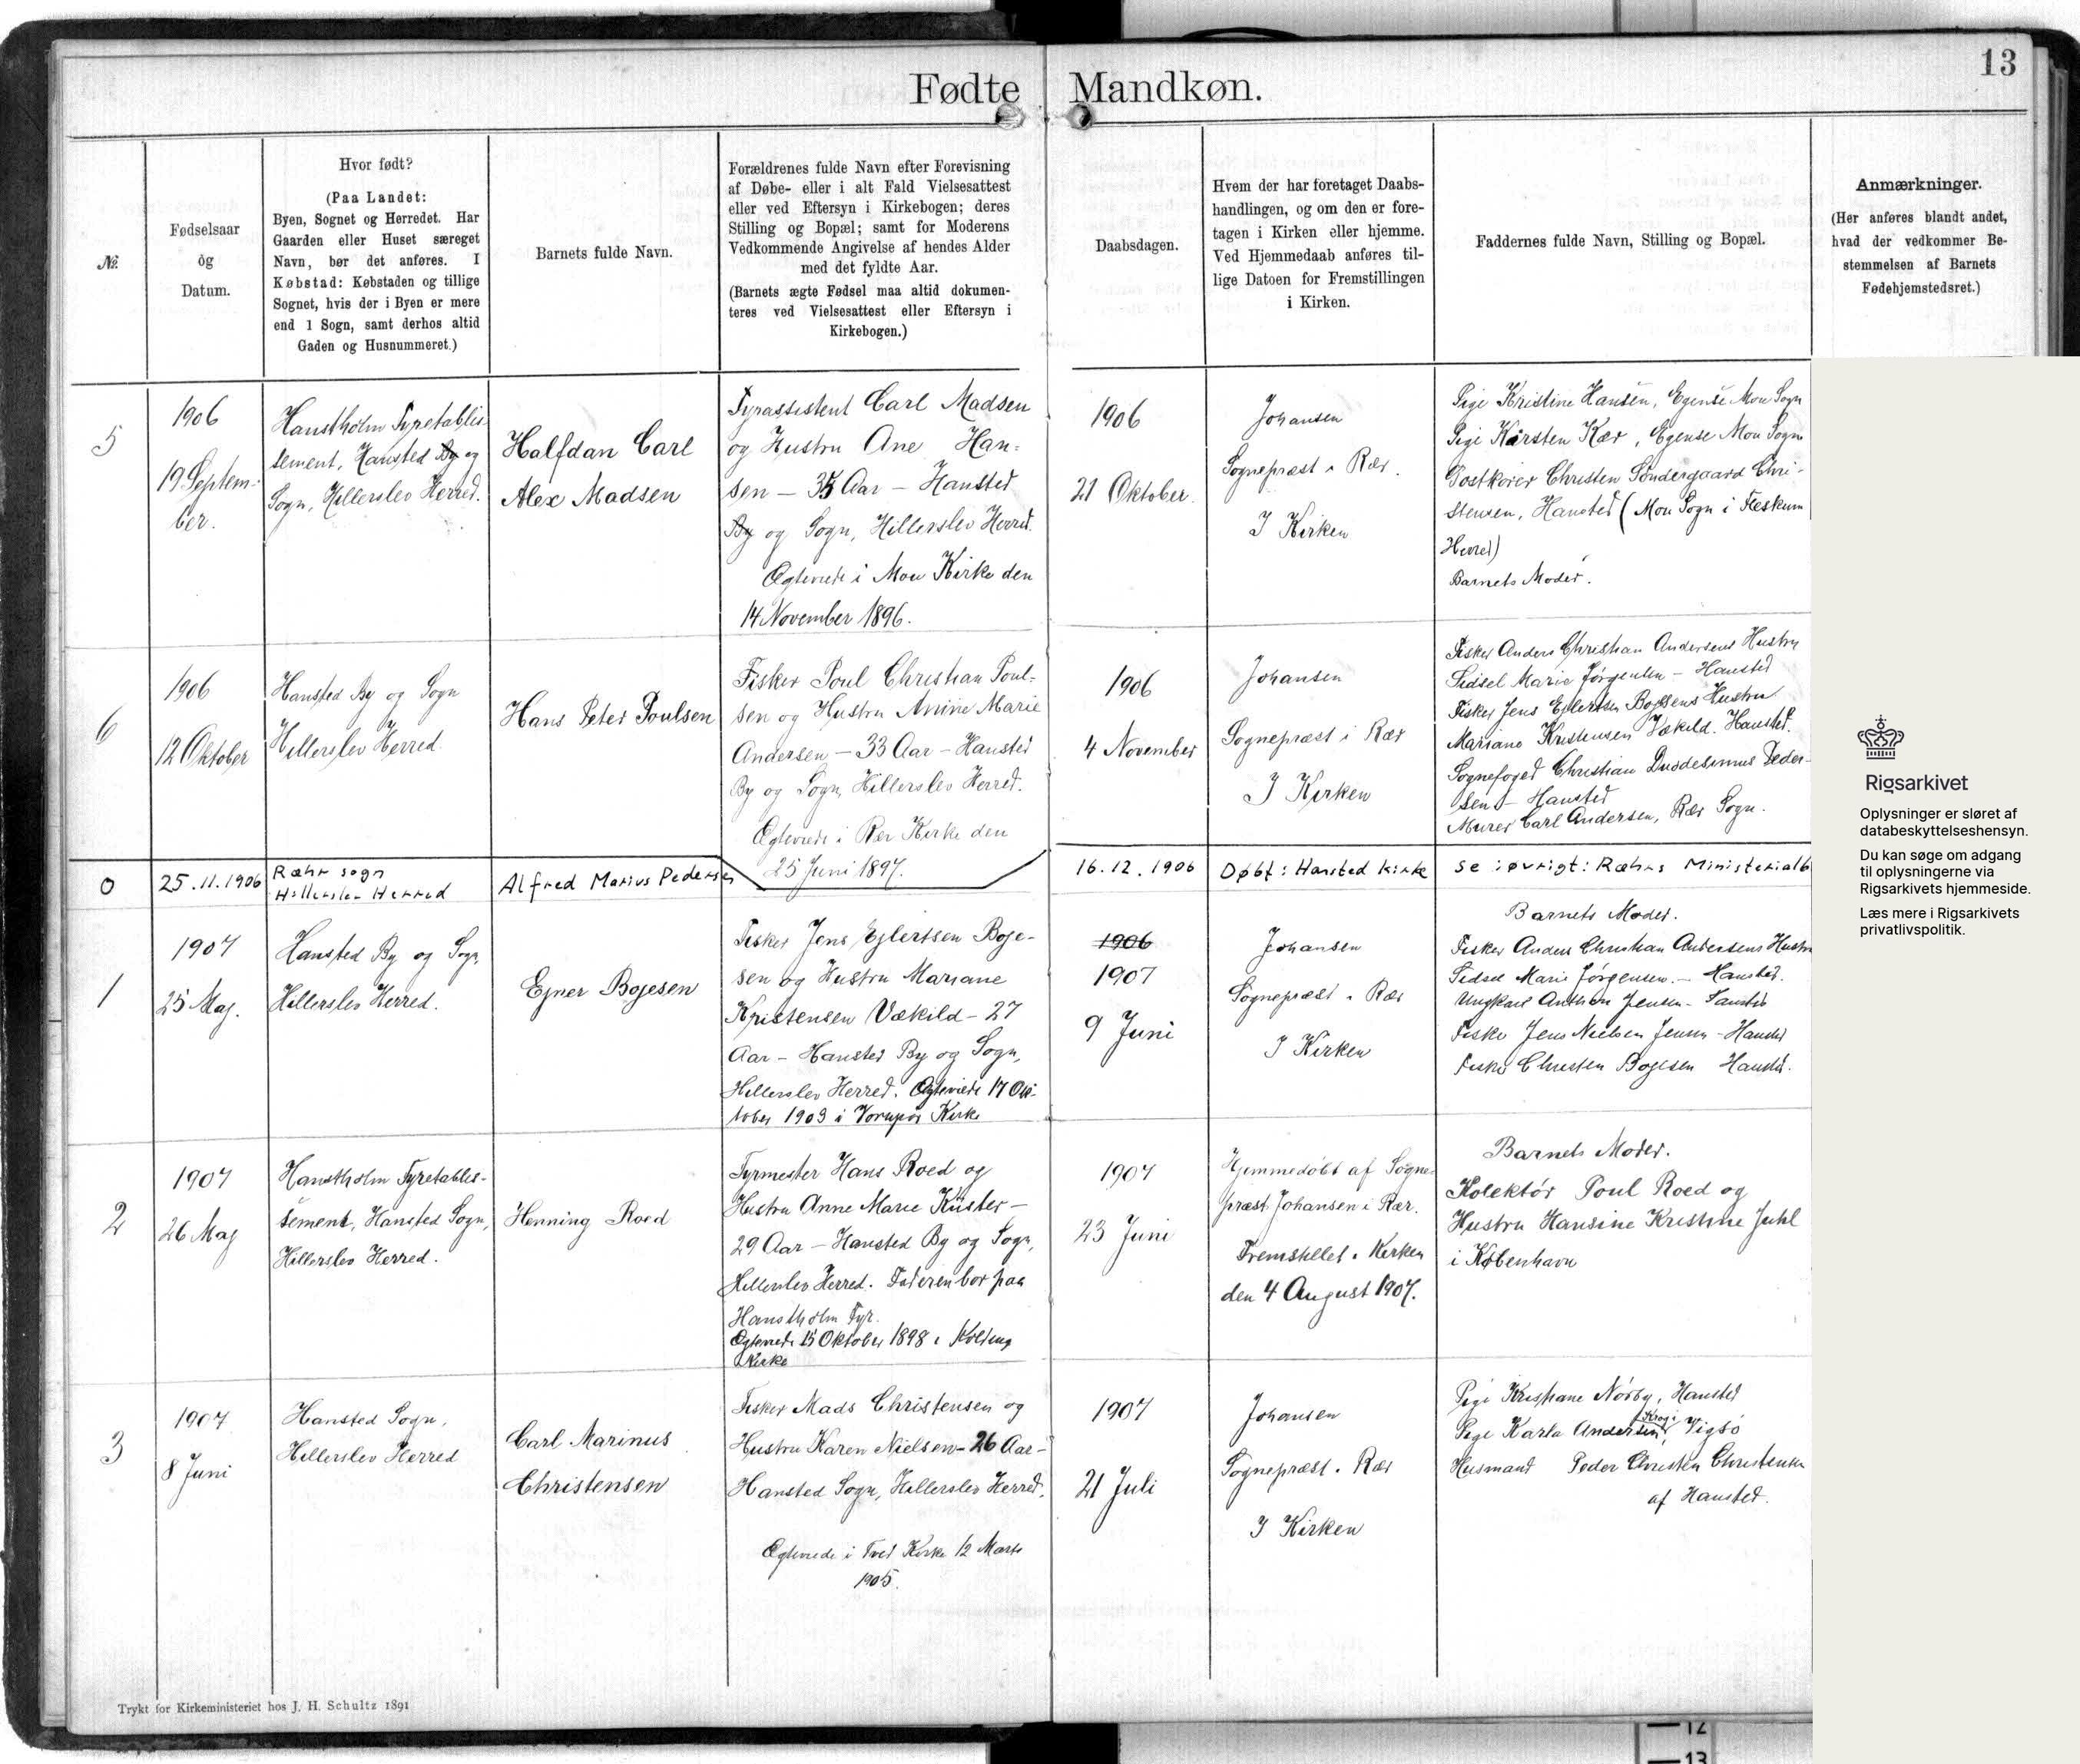 13
Fødte Mandkøn.
№
Fødselsaar
og
Datum.
Hvor født?
(Paa Landet:
Byen, Sognet og Herredet. Har
Gaarden eller Huset særeget
Navn, bør det anføres. I
Købstad: Købstaden og tillige
Sognet, hvis der i Byen er mere
end 1 Sogn, samt derhos altid
Gaden og Husnummeret.)
Barnets fulde Navn.
Forældrenes fulde Navn efter Forevisning
af Døbe- eller i alt Fald Vielsesattest
eller ved Eftersyn i Kirkebogen; deres
Stilling og Bopæl; samt for Moderens
Vedkommende Angivelse af hendes Alder
med det fyldte Aar.
(Barnets ægte Fødsel maa altid dokumen-
teres ved Vielsesattest eller Eftersyn i
Kirkebogen.)
Daabsdagen.
Hvem der har foretaget Daabs-
handlingen, og om den er fore-
tagen i Kirken eller hjemme.
Ved Hjemmedaab anføres til-
lige Datoen for Fremstillingen
i Kirken.
Faddernes fulde Navn, Stilling og Bopæl.
Anmærkninger.
(Her anføres blandt andet,
hvad der vedkommer Be-
stemmelsen af Barnets
Fødehjemstedsret.)
5
1906
19 Septem-
ber.
Hanstholm Fyretablis-
sement, Hansted By og
Sogn, Hillerslev Herred.
Halfdan Carl
Alex Madsen
Fyrassistent Carl Madsen
og Hustru Ane Han-
sen — 35 Aar — Hansted
By og Sogn, Hillerslev Herred.
Ægteviede i Mou Kirke den
14 November 1896.
1906
21 Oktober.
Johansen
Sognepræst i Rær.
I Kirken
Pige Kristine Hansen, Egense Mou Sogn
Pige Karsten Kær, Egense Mou Sogn
Postkører Christen Søndergaard Chri-
stensen, Hansted (Mou Sogn i Fleskum
Herred)
Barnets Moder.
6
1906
12 Oktober
Hansted By og Sogn
Hillerslev Herred
Hans Peter Poulsen
Fisker Poul Christian Poul-
sen og Hustru Anine Marie
Andersen — 33 Aar — Hansted
By og Sogn, Hillerslev Herred.
Ægteviede i Rær Kirke den
25 Juni 1897.
1906
4 November
Johansen
Sognepræst i Rær
I Kirken
Fisker Anders Christian Andersens Hustru
Sidsel Marie Jørgensen — Hansted
Fisker Jens Ejlertsen Bojesens Hustru
Mariane Kristensen Vækild. Hansted.
Sognefoged Christian Duodesimus Peder-
sen — Hansted
Murer Carl Andersen, Rær Sogn.
0
25.11.1906
Ræhr sogn
Hillerslev Herred
Alfred Marius Pedersen
16.12.1906
Døbt: Hansted kirke
se iøvrigt: Ræhrs Ministerialb
1
1907
25 Maj.
Hansted By og Sogn
Hillerslev Herred.
Ejner Bojesen
Fisker Jens Ejlertsen Boje-
sen og Hustru Mariane
Kristensen Vækild — 27
Aar — Hansted By og Sogn,
Hillerslev Herred. Ægteviede 17 Ok-
tober 1903 i Vorupør Kirke
1906
1907
9 Juni
Johansen
Sognepræst i Rær
I Kirken
Barnets Moder.
Fisker Anders Christian Andersens Hustru
Sidsel Marie Jørgensen. — Hansted.
Ungkarl Anthon Jensen
Fisker Jens Nielsen Jensen — Hansted
Fisker Christen Bojesen Hansted.
2
1907
26 Maj
Hanstholm Fyretablis-
sement, Hansted Sogn,
Hillerslev Herred.
Henning Roed
Fyrmester Hans Roed og
Hustru Anne Marie Küster —
29 Aar — Hansted By og Sogn,
Hillerslev Herred. Faderen bor paa
Hanstholm Fyr.
Ægteviede 15 Oktober 1898 i Kolding
Kirke
1907
23 Juni
Hjemmedøbt af Sogne-
præst Johansen i Rær.
Fremstillet i Kirken
den 4 August 1907.
Barnets Moder.
Kolektør Poul Roed og
Hustru Hansine Kristine Juhl
i København
3
1907
8 Juni
Hansted Sogn,
Hillerslev Herred
Carl Marinus
Christensen
Fisker Mads Christensen og
Hustru Karen Nielsen — 26 Aar —
Hansted Sogn, Hillerslev Herred.
Ægteviede i Tved Kirke 12 Marts
1905.
1907
21 Juli
Johansen
Sognepræst i Rær
I Kirken
Pige Kristiane Nørby, Hansted
Pige Karla Andersen, Vigsø
Husmand Peder Christen Christensen
af Hansted.
Trykt for Kirkeministeriet hos J. H. Schultz 1891
Rigsarkivet
Oplysninger er sløret af
databeskyttelseshensyn.
Du kan søge om adgang
til oplysningerne via
Rigsarkivets hjemmeside.
Læs mere i Rigsarkivets
privatlivspolitik.
12
13